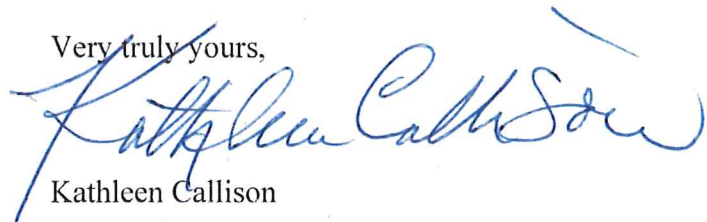 Very truly yours,
Kathleen Callison
Kathleen Callison